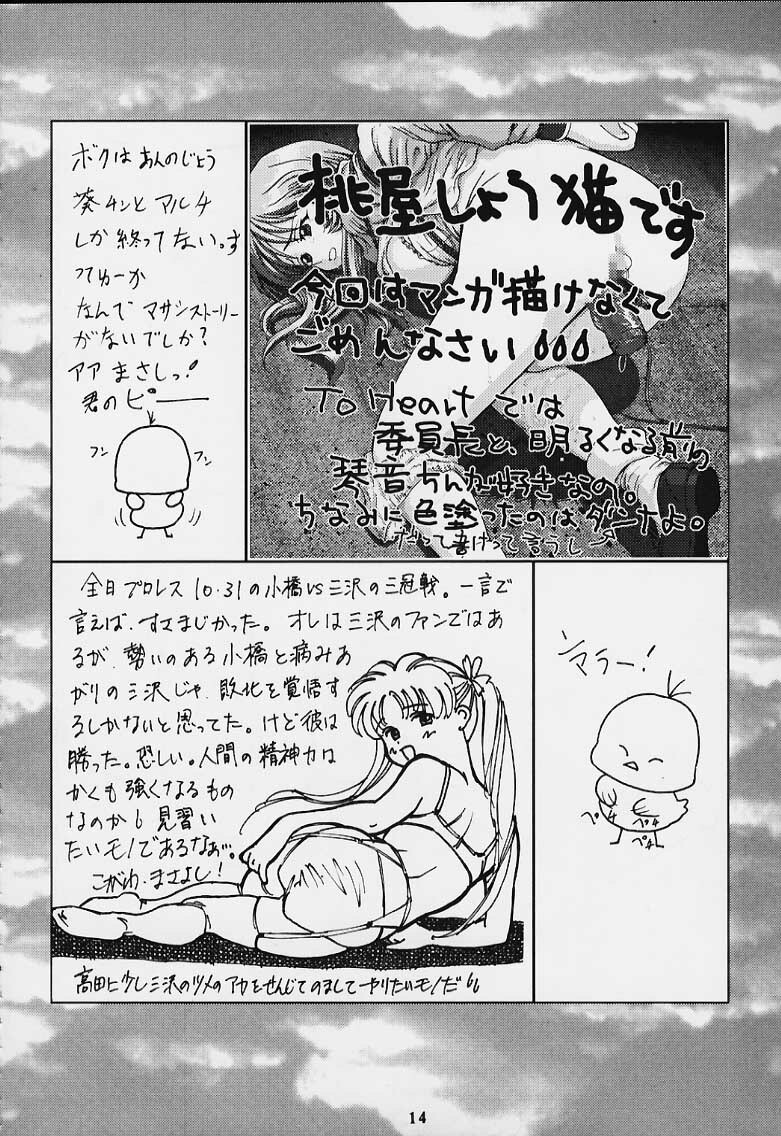 ボクは あんのじょう
葵チンと マルチ
しか 終ってない。す
つてゅーか
なんで マサシストーリー
がないでしか？
アア まさしっ！
君のピーーー
フン
フン
桃屋しょう猫です
今回はマンガ描けなくて
ごめんなさい
To Heart では
委員長と、明るくなる前の
琴音ちんが好きなの。
ちなみに色塗ったのはダンナよ。
だって書けって言うしー
全日プロレス 10.31の小橋vs三沢の三冠戦。一言で
言えば、すさまじかった。オレは三沢のファンではあ
るが、勢いのある小橋と病みあ
がりの三沢じゃ、敗北を覚悟す
るしかないと思ってた。けど彼は
勝った。恐しい。人間の精神力は
かくも強くなるもの
なのか 見習い
たいモノであるなぁ…。
こがわ まさよし！
高田に少し三沢のツメのアカをせんじてのましてやりたいモノだ
マラー！
ペチ
ペチ
ペチ
14